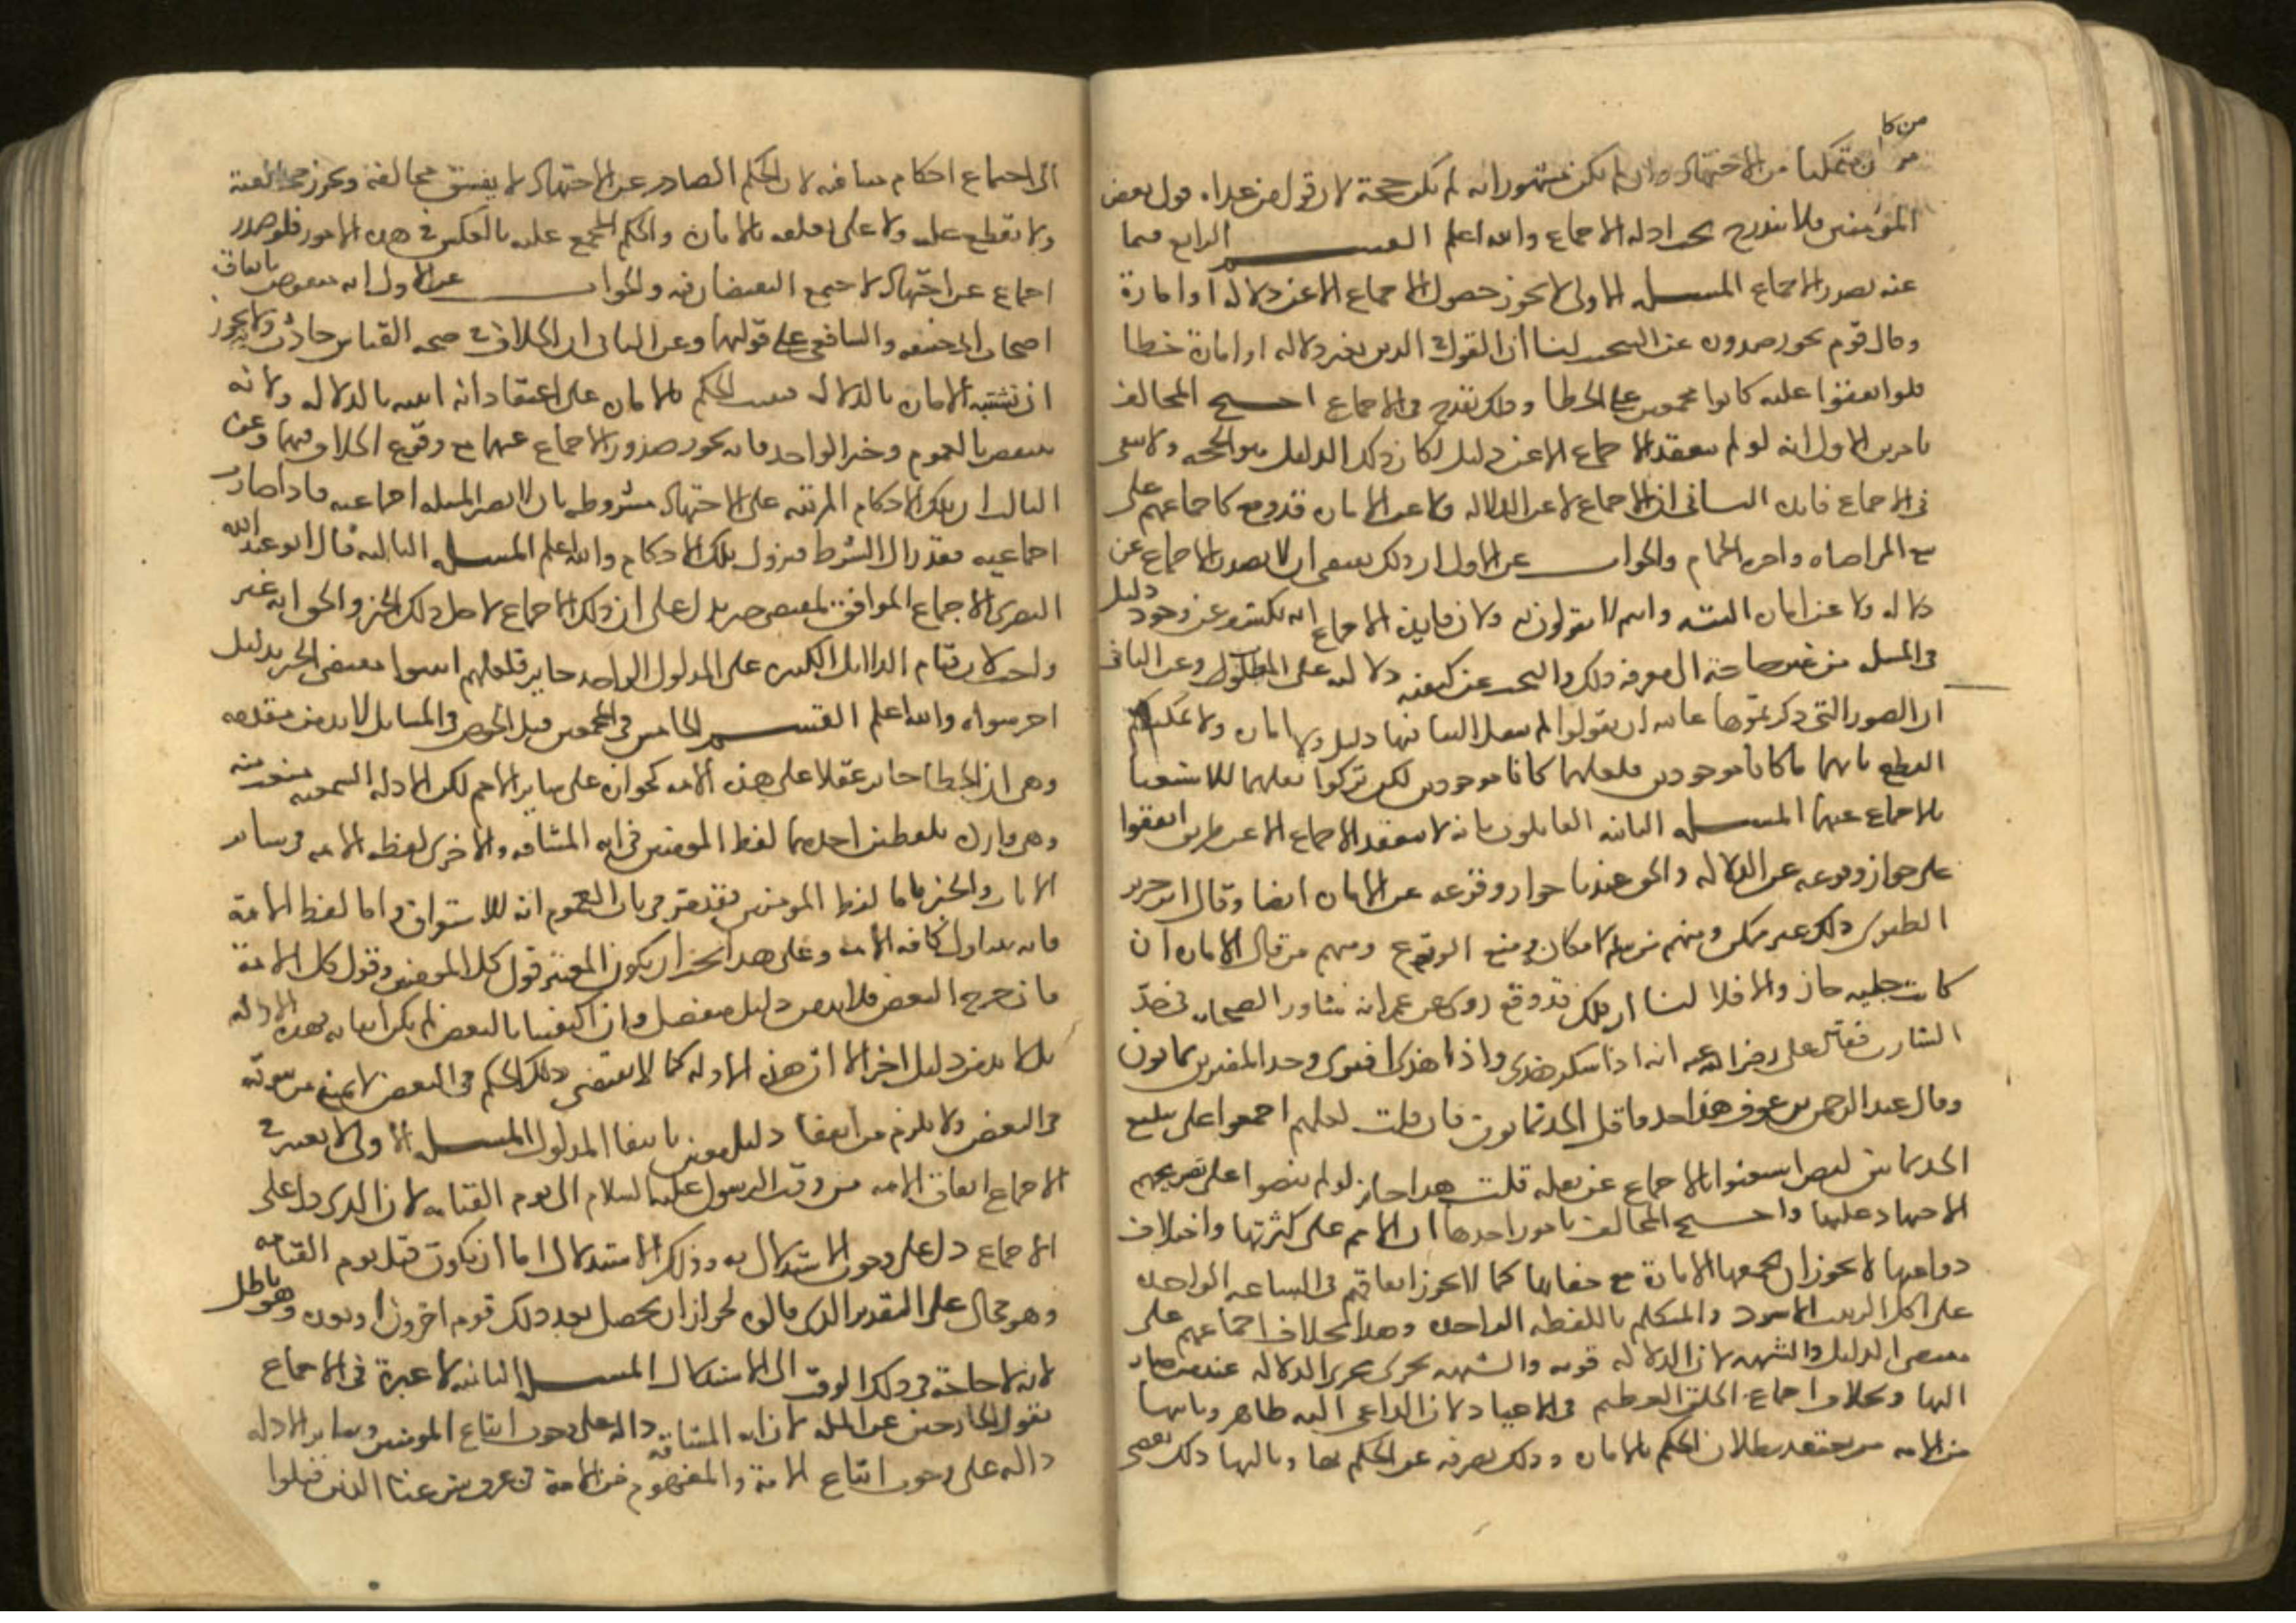 من كا
من كان متمكنا من الاجتهاد وان لم يكن مشهورا به لم يكن حجة لان قول من عداه قول بعض
المؤمنين فلا يندرج تحت ادلة الاجماع والله اعلم القسم الرابع فيما
عنه يصدر الاجماع المسلة الاولى لا يجوز حصول الاجماع الا عن دلالة او امارة
وقال قوم يجوز صدوره عن التبخيت لنا ان القول في الدين بغير دلالة او امارة خطا
فلو اتفقوا عليه كانوا مجمعين على الخطا وذلك يقدح في الاجماع احتج المخالف
بامرين الاول انه لو لم ينعقد الاجماع الا عن دليل لكان ذلك الدليل هو الحجة ولا يبقى
في الاجماع فايدة الثاني ان الاجماع لا عن الدلالة ولا عن الامارة قد وقع كاجماعهم على
بيع المراضاة واجرة الحمام والجواب عن الاول ان ذلك يقتضي ان لا يصدر الاجماع عن
دلالة ولا عن امارة البتة وانتم لا تقولون به ولان فايدة الاجماع انه يكشف عن وجود دليل
في المسلة من غير حاجة الى معرفة ذلك والبحث عن كيفية دلالته على المطلوب وعن الثاني
ان الصور التي ذكرتموها غايته ان يقولوا لم ينقل الينا فيها دليل ولا امارة ولا يمكنكم
القطع بانهما ما كانا موجودين فلعلهما كانا موجودين لكن تركوا نقلهما للاستغنا
بالاجماع عنهما المسلة الثانية القايلون بانه لا ينعقد الاجماع الا عن طريق اتفقوا
على جواز وقوعه عن الدلالة والحق عندنا جواز وقوعه عن الامارة ايضا وقال ابن جرير
الطبري ذلك غير ممكن ومنهم من سلم الامكان ومنع الوقوع ومنهم من قال الامارة ان
كانت جلية جاز والا فلا لنا ان ذلك قد وقع روي عن عمر انه شاور الصحابة في حد
الشارب فقال علي رضي الله عنه انه اذا سكر هذى واذا هذى افترى وحد المفتري ثمانون
وقال عبد الرحمن بن عوف هذا حد واقل الحد ثمانون فان قلت لعلهم اجمعوا على تبليغ
الحد ثمانين لنص استغنوا بالاجماع عن نقله قلت هذا جايز لو لم ينصوا على تصريحهم
الاجتهاد عليها واحتج المخالف بامور احدها ان الامم على كثرتها واختلاف
دواعيها لا يجوز ان تجمعها الامارة مع خفايها كما لا يجوز اتفاقهم في الساعة الواحدة
على اكل الزبيب الاسود والتكلم باللفظة الواحدة وهذا بخلاف اجماعهم على
مقتضى الدليل والشبهة لان الدلالة قوية والشبهة تجري مجرى الدلالة عند من صار
اليها وبخلاف اجماع الخلق العظيم في الاعياد لان الداعي اليه ظاهر وثانيها
من الامة من يعتقد بطلان الحكم بالامارة وذلك يصرفه عن الحكم بها وثالثها ذلك يفضي
الى اجتماع احكام متنافية لان الحكم الصادر عن الاجتهاد لا يفسق مخالفه وتجوز مخالفته
ولا يقطع عليه ولا على تعلقه بالامارة والحكم المجمع عليه بالعكس في هذه الامور فلو صدر
اجماع عن اجتهاد لاجتمع النقيضان فيه والجواب عن الاول انه منقوض باتفاق
اصحاب ابي حنيفة والشافعي على قولهما وعن الثاني ان الخلاف في صحة القياس حادث ولانه يجوز
ان تشتبه الامارة بالدلالة فيثبت الحكم بالامارة على اعتقاد انه اثبته بالدلالة ولانه
ينتقض بالعموم وخبر الواحد فانه يجوز صدور الاجماع عنهما مع وقوع الخلاف فيهما وعن
الثالث ان تلك الاحكام المرتبة على الاجتهاد مشروطة بان لا تصير المسلة اجماعية فاذا صارت
اجماعية فقد زال الشرط فتزول تلك الاحكام والله اعلم المسلة الثالثة قال ابو عبد الله
البصري الاجماع الموافق لمقتضى خبر يدل على ان ذلك الاجماع لاجل ذلك الخبر والحق انه غير
واجب لان قيام الدلايل الكثيرة على المدلول الواحد جايز فلعلهم اثبتوا مقتضى الخبر بدليل
اخر سواه والله اعلم القسم الخامس في المجمعين قبل الخوض في المسايل لابد من مقدمة
وهي ان الخطا جايز عقلا على هذه الامة كجوازه على ساير الامم لكن الادلة السمعية منعت منه
وهي واردة بلفظتين احدهما لفظ المؤمنين في اية المشاقة والاخرى لفظ الامة في ساير
الايات والخبر فاما لفظ المومنين فقد مر في باب العموم انه للاستغراق واما لفظ الامة
فانه يتناول كافة الامة وعلى هذا يجب ان يكون المعتبر قول كل المومنين وقول كل الامة
فان خرج البعض فلابد من دليل منفصل وان اكتفينا بالبعض لم يكن اثباته بهذه الادلة
بل لابد من دليل اخر الا ان هذه الادلة كما لا تقتضي ذلك الحكم في البعض لا تمنع من ثبوته
في البعض ولا يلزم من انتفا دليل معين انتفا المدلول المسلة الاولى لا يعتبر في
الاجماع اتفاق الامة من وقت الرسول عليه السلام الى يوم القيامة لان الذي دل على
الاجماع دل على وجوب الاستدلال به وذلك الاستدلال اما ان يكون قبل يوم القيامة
وهو محال على التقدير الذي قالوه لجواز ان يحصل بعد ذلك قوم اخرون او بعده وهو باطل
لانه لا حاجة في ذلك الوقت الى الاستدلال المسلة الثانية لا عبرة في الاجماع
بقول الخارجين عن الملة لان اية المشاقة دالة على وجوب اتباع المومنين وساير الادلة
دالة على وجوب اتباع الامة والمفهوم من الامة في عرف شرعنا الذين قبلوا